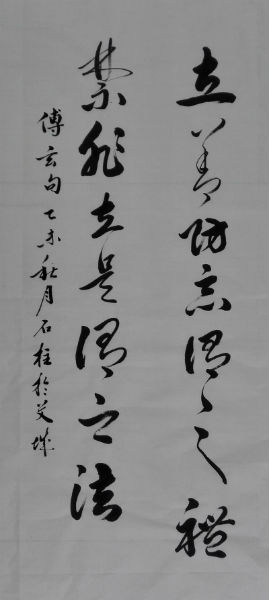 立善防惡謂之禮
禁非立是謂之法
傅玄句乙未秋月石柱於艾城